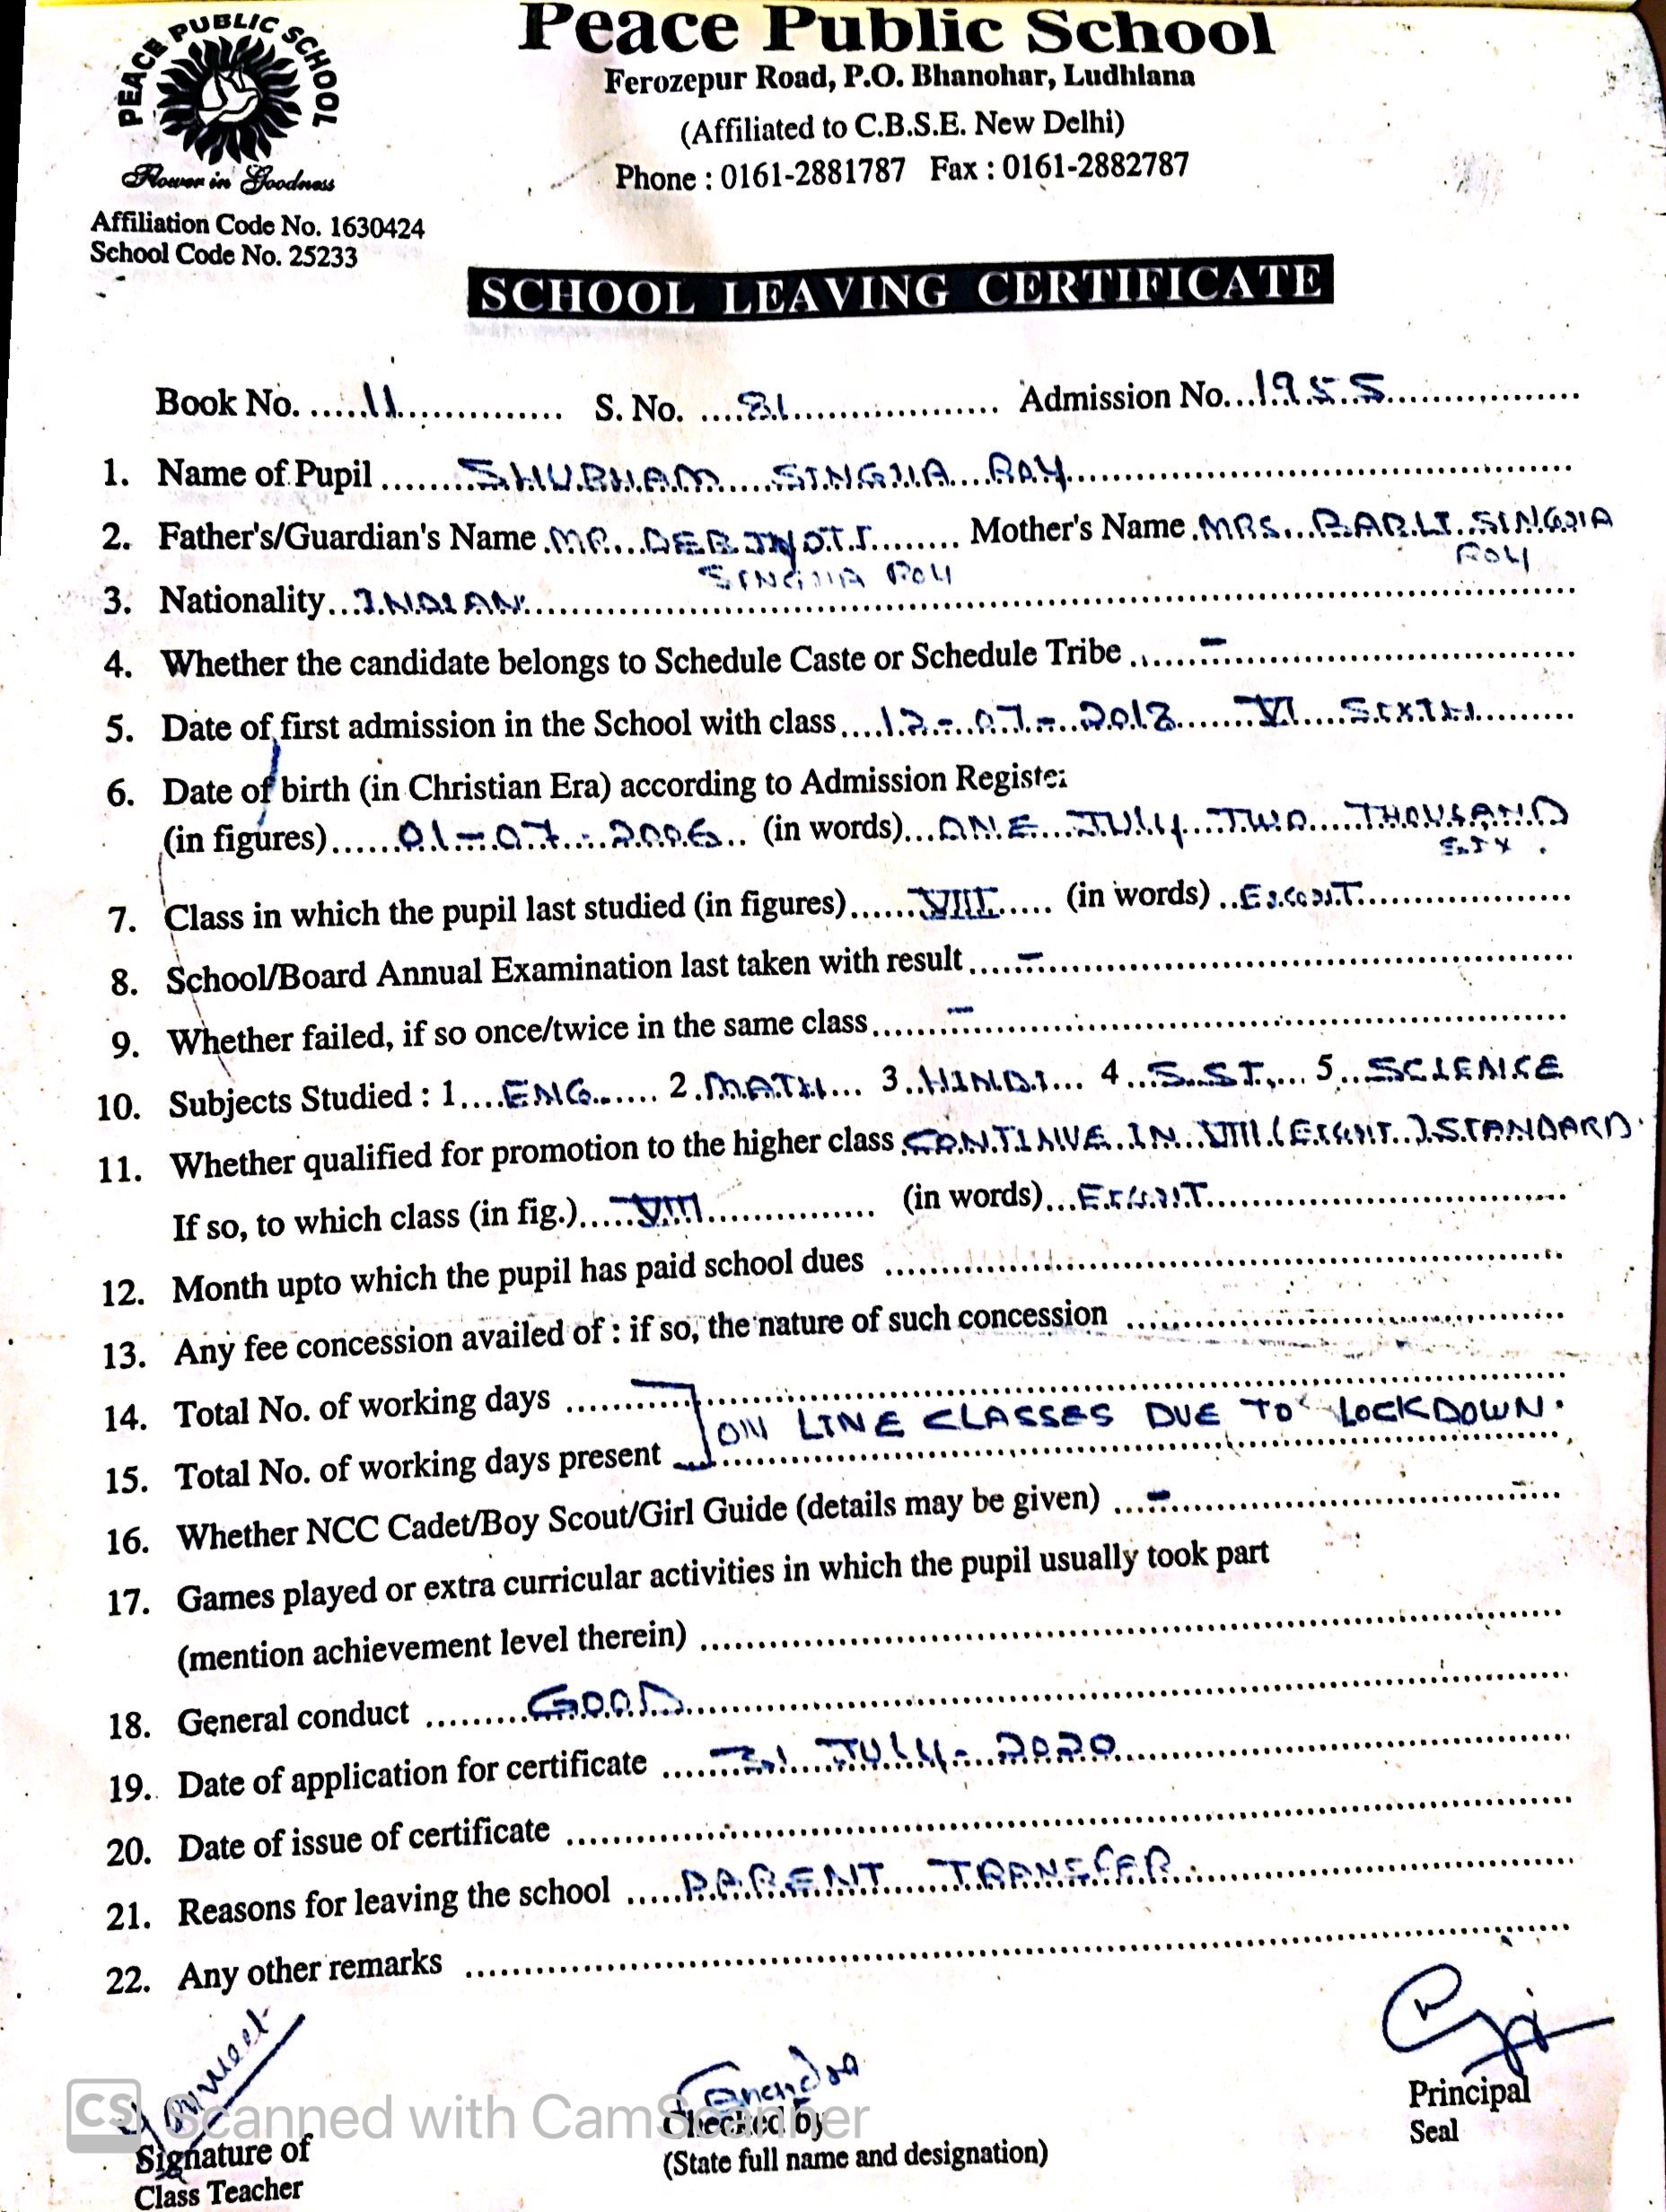 PEACE PUBLIC SCHOOL
Flower in Goodness
Affiliation Code No. 1630424
School Code No. 25233
Peace Public School
Ferozepur Road, P.O. Bhanohar, Ludhiana
(Affiliated to C.B.S.E. New Delhi)
Phone : 0161-2881787 Fax : 0161-2882787
SCHOOL LEAVING CERTIFICATE
Book No. 11 S. No. 81 Admission No. 1955
1. Name of Pupil SHUBHAM SINGHA ROY
2. Father's/Guardian's Name MR. DEBJYOTI Mother's Name MRS. SINGHA
SINGHA ROY ROY
3. Nationality INDIAN
4. Whether the candidate belongs to Schedule Caste or Schedule Tribe -
5. Date of first admission in the School with class 12-07-2018 VI SIXTH
6. Date of birth (in Christian Era) according to Admission Register
(in figures) 01-07-2006 (in words) ONE JULY TWO THOUSAND
SIX.
7. Class in which the pupil last studied (in figures) VIII (in words) EIGHT
8. School/Board Annual Examination last taken with result -
9. Whether failed, if so once/twice in the same class -
10. Subjects Studied : 1 ENG 2 MATH 3 HINDI 4 S.ST. 5 SCIENCE
11. Whether qualified for promotion to the higher class CONTINUE IN VIII (EIGHT) STANDARD.
If so, to which class (in fig.) VIII (in words) EIGHT
12. Month upto which the pupil has paid school dues
13. Any fee concession availed of : if so, the nature of such concession
14. Total No. of working days
ON LINE CLASSES DUE TO LOCKDOWN.
15. Total No. of working days present
16. Whether NCC Cadet/Boy Scout/Girl Guide (details may be given) -
17. Games played or extra curricular activities in which the pupil usually took part
(mention achievement level therein)
18. General conduct GOOD
19. Date of application for certificate 31 JULY - 2020
20. Date of issue of certificate
21. Reasons for leaving the school PARENT TRANSFER.
22. Any other remarks
CS Scanned with CamScanner
Signature of
Class Teacher
Checked by
(State full name and designation)
Principal
Seal